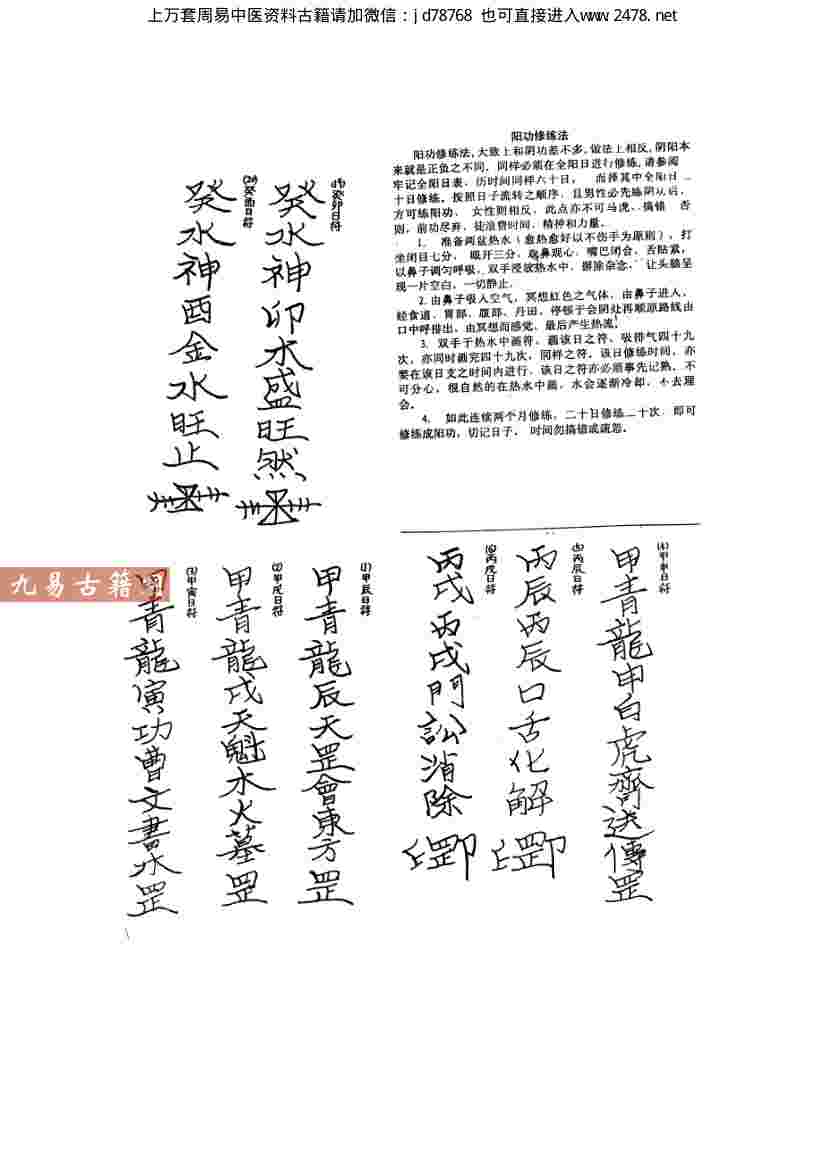 上万套周易中医资料古籍请加微信：jd78768 也可直接进入www.2478.net
阳功修练法
阳功修练法，大致上和阴功差不多，做法上相反，阴阳本
来就是正负之不同，同样必须在全阳日进行修练，请参阅
牢记全阳日表，历时间同样六十日， 而择其中全阳日二
十日修练，按照日子流转之顺序，且男性必先练阴从后，
方可练阳功， 女性则相反，此点亦不可马虎、搞错， 否
则，前功尽弃，徒浪费时间、精神和力量。
1. 准备两盆热水（愈热愈好以不伤手为原则），打
坐闭目七分， 眼开三分， 鼻观心， 嘴巴闭合，舌贴紧，
以鼻子调匀呼吸，双手浸放热水中，摒除杂念， 让头脑呈
现一片空白，一切静止。
2. 由鼻子吸入空气，冥想红色之气体，由鼻子进入，
经食道、胃部、腹部、丹田，停顿于会阴处再顺原路线由
口中呼措出，由冥想而感觉，最后产生热流。
3. 双手于热水中画符，画该日之符，吸排气四十九
次，亦同时画完四十九次，同样之符，该日修练时间，亦
要在该日支之时间内进行，该日之符亦必须事先记熟，不
可分心，很自然的在热水中画，水会逐渐冷却，不去理
会。
4. 如此连续两个月修练，二十日修练二十次，即可
修练成阳功，切记日子， 时间勿搞错或疏忽。
⒆癸卯日符
癸水神卯木盛旺然
⒇癸酉日符
癸水神酉金水旺止
⑷甲申日符
甲青龍申白虎齋送傳罡
⑸丙辰日符
丙辰丙辰口舌化解
⑹丙戌日符
丙戌丙戌門訟消除
⑴甲辰日符
甲青龍辰天罡會東方罡
⑵甲戌日符
甲青龍戌天魁水火墓罡
⑶甲寅日符
甲青龍寅功曹文書水罡
九易古籍